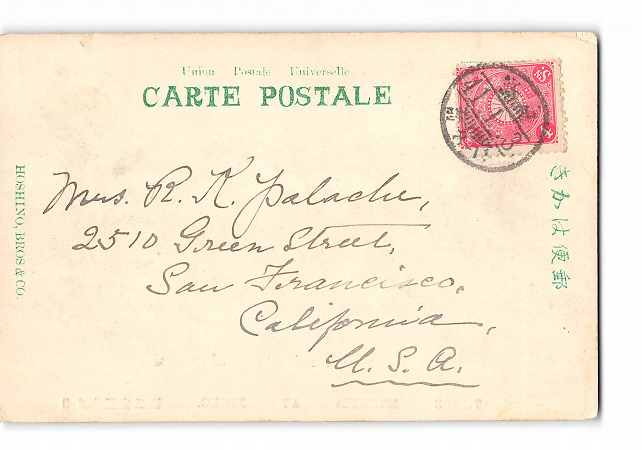 Union Postale Universelle
CARTE POSTALE
HOSHINO, BROS & CO.
きかは便郵
Mrs. R. K. Palache,
2510 Green Street,
San Francisco,
California,
U. S. A.